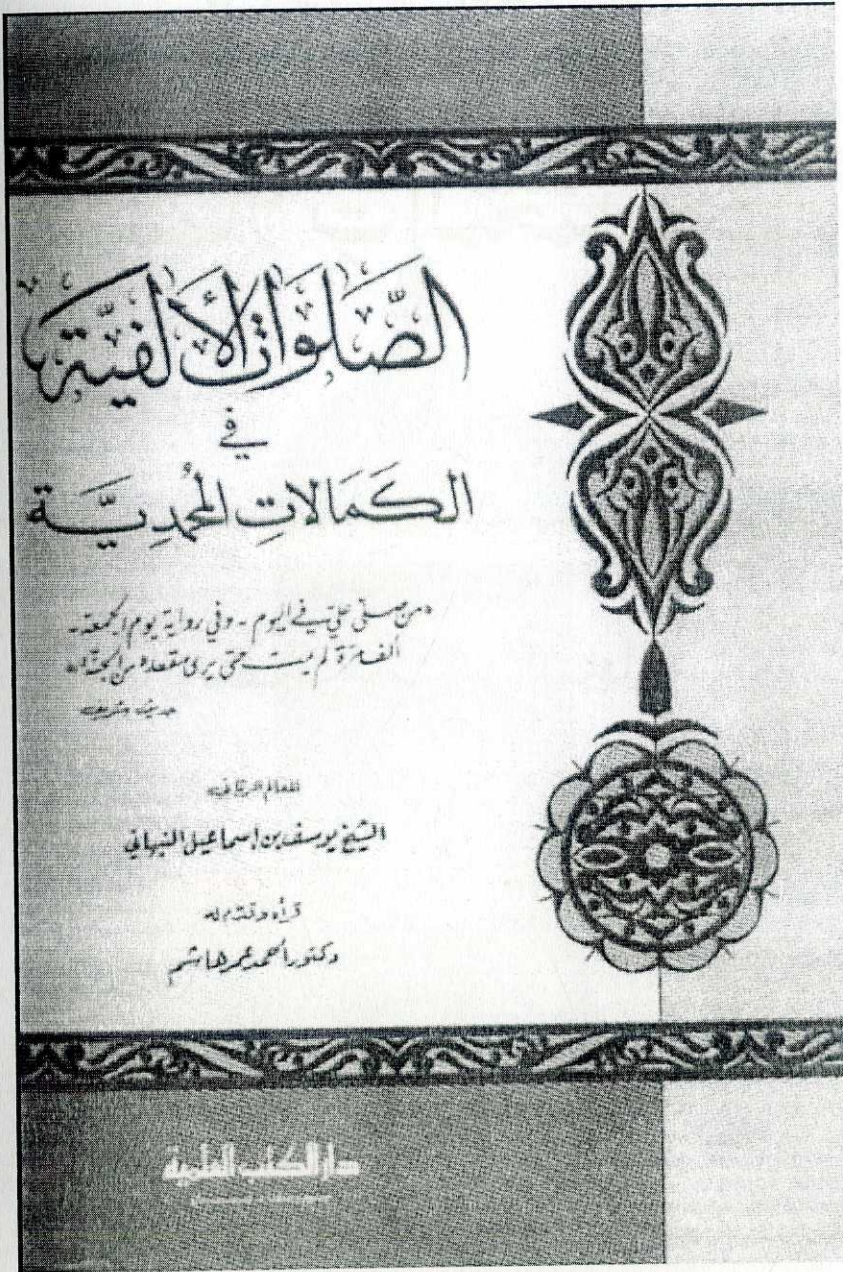 الصَّلَوَاتُ الأَلْفِيَّة
في
الكَمَالاتِ المُحمدِيَّة
«من صلى علي في اليوم - وفي رواية يوم الجمعة -
ألف مرة لم يمت حتى يرى مقعده من الجنة»
حديث شريف
للعالم الرباني
الشيخ يوسف بن إسماعيل النبهاني
قرأه وقدم له
دكتور أحمد عمر هاشم
دار الكتب العلمية